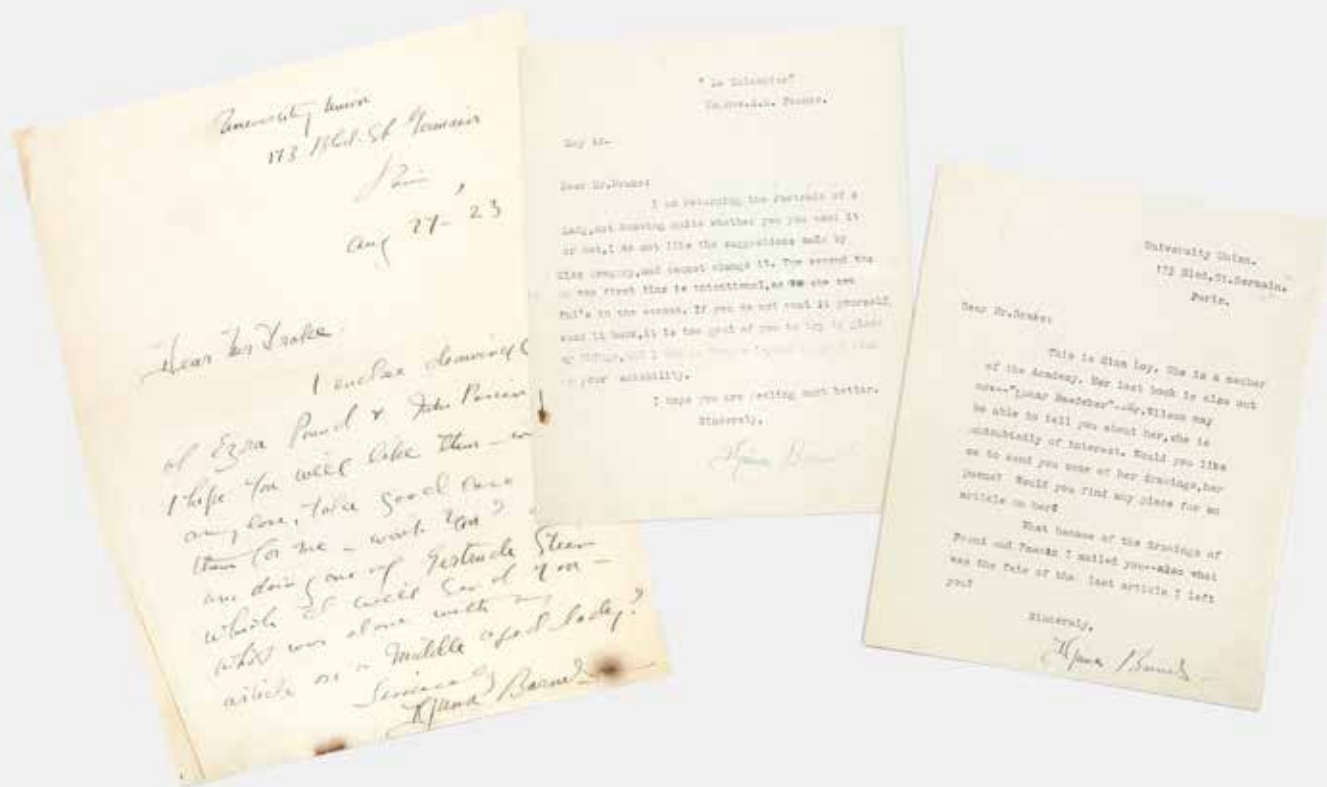 University Union
173 Blvd. St Germain
Paris
Aug 27- 23
Dear Mr Drake
I enclose drawing
of Ezra Pound &
I hope you will like them
any case, take good care
them for me – won't you?
am doing one of Gertrude Stein
which I will send you –
what was done with my
article on a middle aged lady?
Sincerely
Djuna Barnes
May
Dear Mr.Drake:
I am returning the Portrait of a
Lady,not knowing quite whether you you want it
or not,I do not like the suggestions made by
Miss Gregory,and cannot change it. The second the
in the first line is intentional,as
in the woman. If you do not want it yourself
want it back,it is too good of you to try to place
my things,
to your amiability.
I hope you are feeling much better.
Sincerely,
Djuna Barnes
University Union.
173 Blvd.St.Germain.
Paris.
Dear Mr.Drake:
This is Mina Loy. She is a member
of the Academy. Her last book is also out
now--"Lunar Baedeker"--Mr.Wilson may
be able to tell you about her,she is
undoubtedly of interest. Would you like
me to send you some of her drawings,her
poems? Would you find any place for an
article on her?
What became of the drawings of
Pound and I mailed you--also what
was the fate of the last article I left
you?
Sincerely,
Djuna Barnes